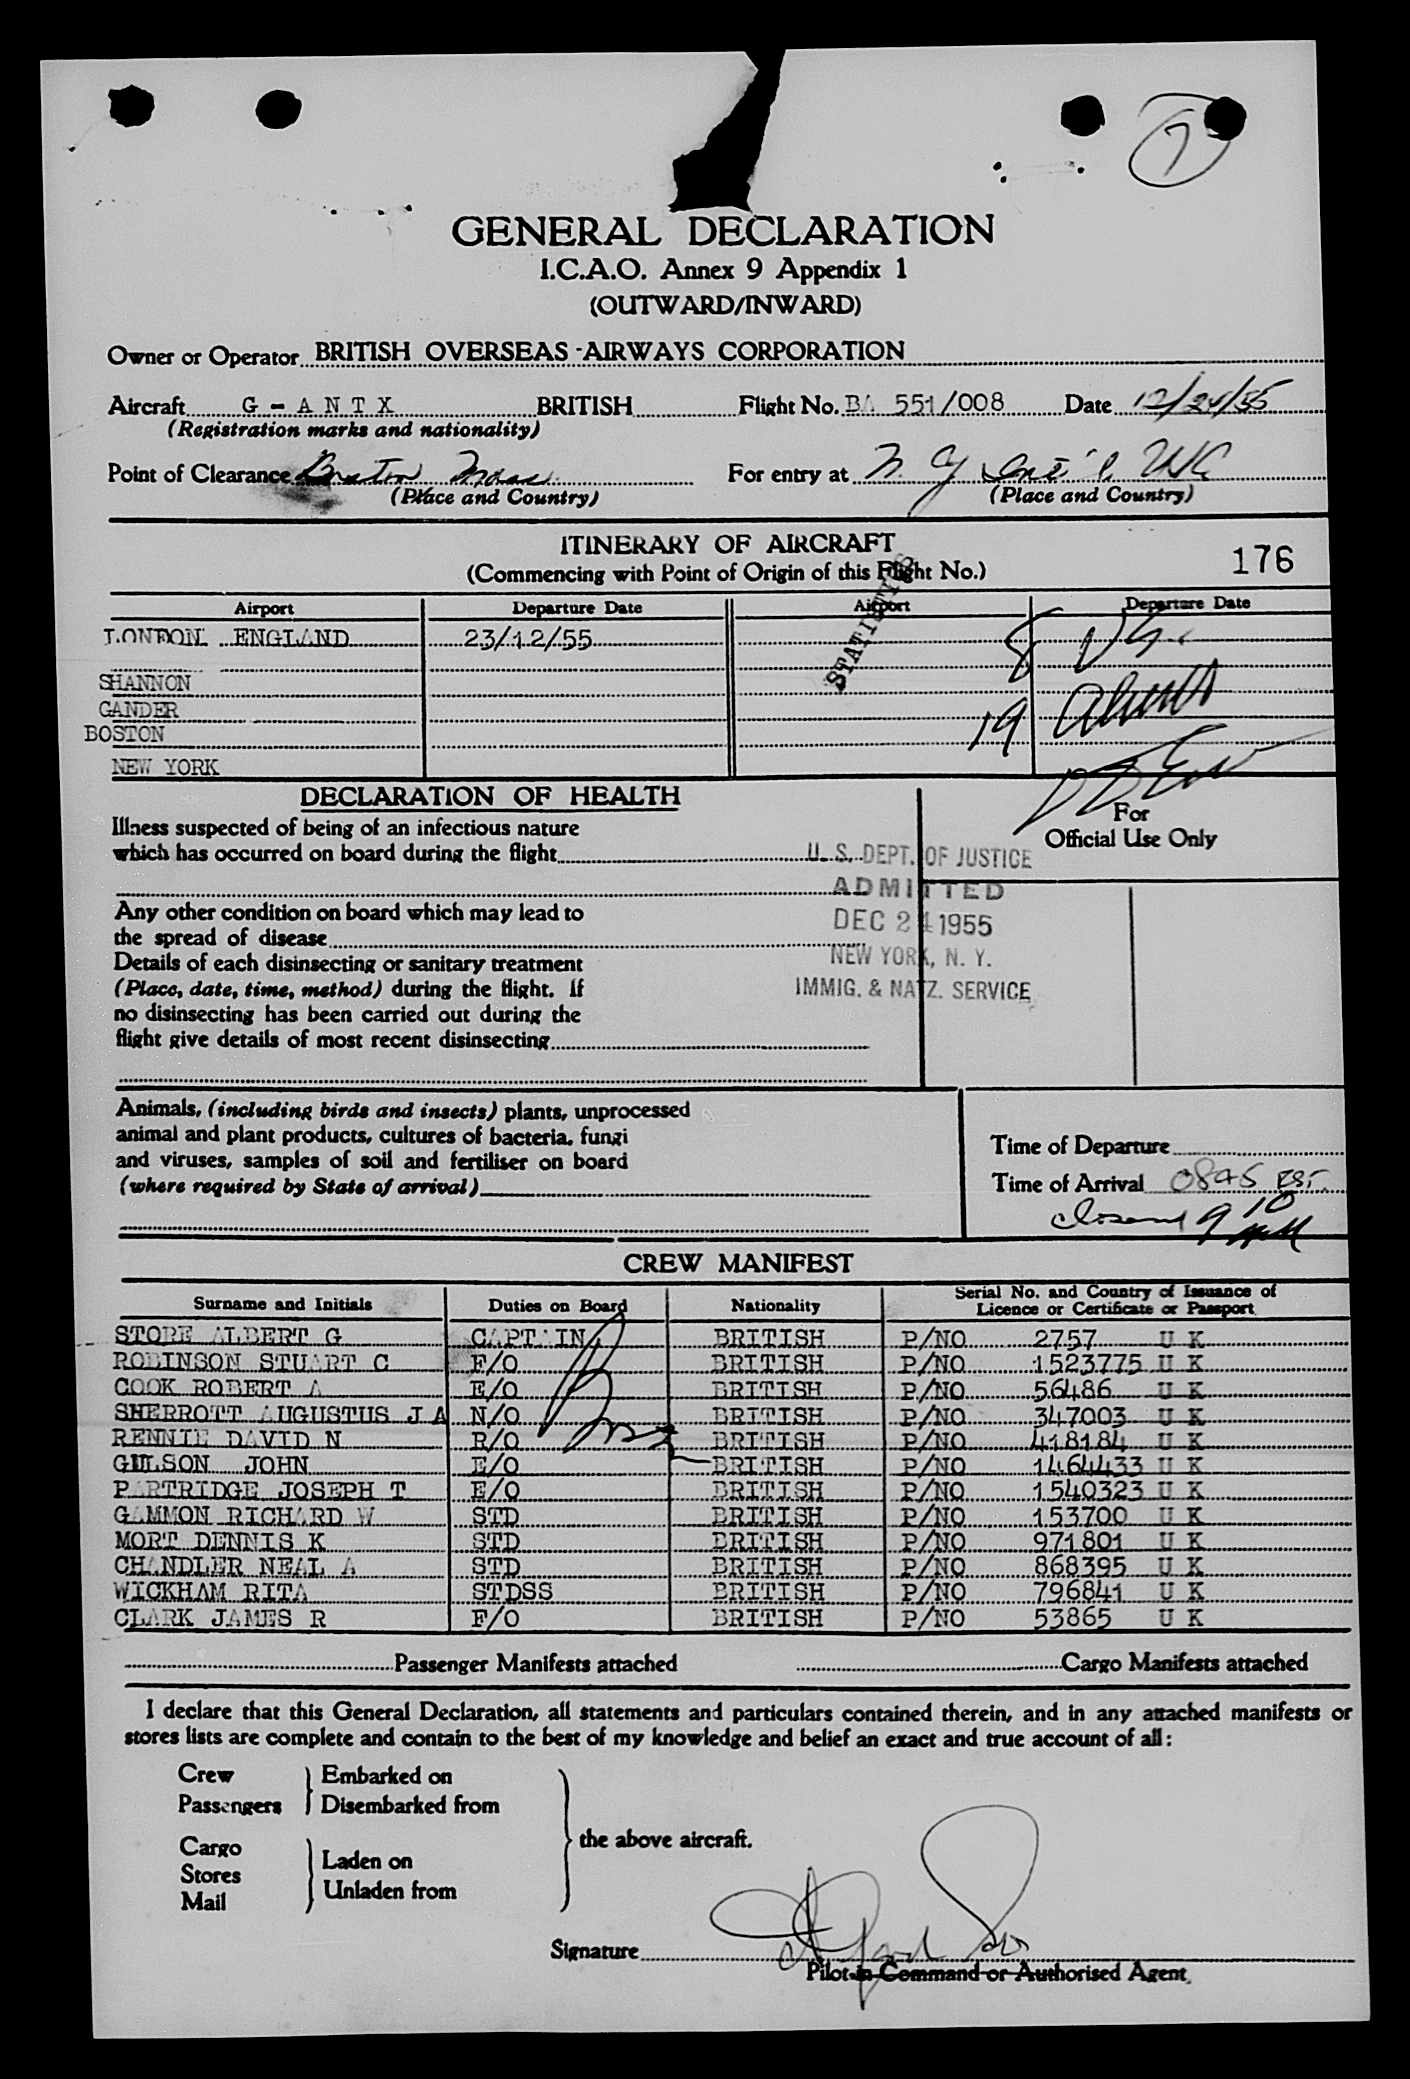 7
GENERAL DECLARATION
I.C.A.O. Annex 9 Appendix 1
(OUTWARD/INWARD)
Owner or Operator BRITISH OVERSEAS - AIRWAYS CORPORATION
Aircraft G - A N T X BRITISH Flight No. BA 551/008 Date 12/24/55
(Registration marks and nationality)
Point of Clearance Boston Mass. For entry at N. Y. Int'l.
(Place and Country) (Place and Country)
ITINERARY OF AIRCRAFT
(Commencing with Point of Origin of this Flight No.) 176
Airport Departure Date Airport Departure Date
STATISTICS
LONDON ENGLAND 23/12/55 8
SHANNON
GANDER 19
BOSTON
NEW YORK
DECLARATION OF HEALTH
For
Official Use Only
Illness suspected of being of an infectious nature
which has occurred on board during the flight
U. S. DEPT. OF JUSTICE
ADMITTED
DEC 24 1955
NEW YORK, N. Y.
IMMIG. & NATZ. SERVICE
Any other condition on board which may lead to
the spread of disease
Details of each disinsecting or sanitary treatment
(Place, date, time, method) during the flight. If
no disinsecting has been carried out during the
flight give details of most recent disinsecting
Animals, (including birds and insects) plants, unprocessed
animal and plant products, cultures of bacteria, fungi
and viruses, samples of soil and fertiliser on board
(where required by State of arrival)
Time of Departure
Time of Arrival 0845 EST.
9 10
CREW MANIFEST
Surname and Initials Duties on Board Nationality Serial No. and Country of Issuance of Licence or Certificate or Passport
STORE ALBERT G CAPTAIN BRITISH P/NO 2757 U K
ROBINSON STUART C F/O BRITISH P/NO 1523775 U K
COOK ROBERT A E/O BRITISH P/NO 56486 U K
SHERROTT AUGUSTUS J A N/O BRITISH P/NO 347003 U K
RENNIE DAVID N R/O BRITISH P/NO 418184 U K
JOHN E/O BRITISH P/NO 1464433 U K
PARTRIDGE JOSEPH T E/O BRITISH P/NO 1540323 U K
GAMMON RICHARD W STD BRITISH P/NO 153700 U K
MORT DENNIS K STD BRITISH P/NO 971801 U K
CHANDLER NEAL A STD BRITISH P/NO 868395 U K
WICKHAM RITA STDSS BRITISH P/NO 796841 U K
CLARK JAMES R F/O BRITISH P/NO 53865 U K
Passenger Manifests attached Cargo Manifests attached
I declare that this General Declaration, all statements and particulars contained therein, and in any attached manifests or
stores lists are complete and contain to the best of my knowledge and belief an exact and true account of all:
Crew Embarked on
Passengers Disembarked from
the above aircraft.
Cargo
Stores Laden on
Mail Unladen from
Signature
Pilot in Command or Authorised Agent